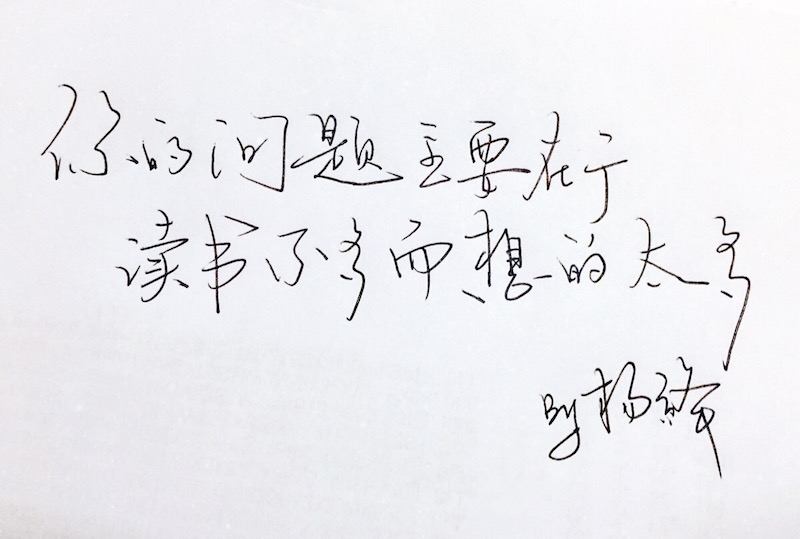 你的问题主要在于
读书不多而想的太多
By 杨绛